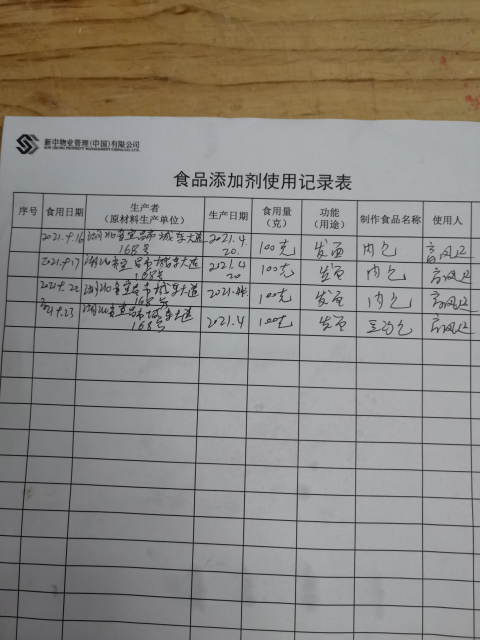 新中物业管理(中国)有限公司
SUN CHUNG PROPERTY MANAGEMENT (CHINA) CO.,LTD
食品添加剂使用记录表
序号 食用日期 生产者（原材料生产单位） 生产日期 食用量（克） 功能（用途） 制作食品名称 使用人
2021.9.16 湖北省宜昌市城东大道168号 2021.4.20 100克 发面 肉包
2021.9.17 湖北省宜昌市城东大道168号 2021.4.20 100克 发面 肉包
2021.9.22 湖北省宜昌市城东大道168号 2021.4. 100克 发面 肉包
9.23 湖北省宜昌市城东大道168号 2021.4 100克 发面 豆沙包